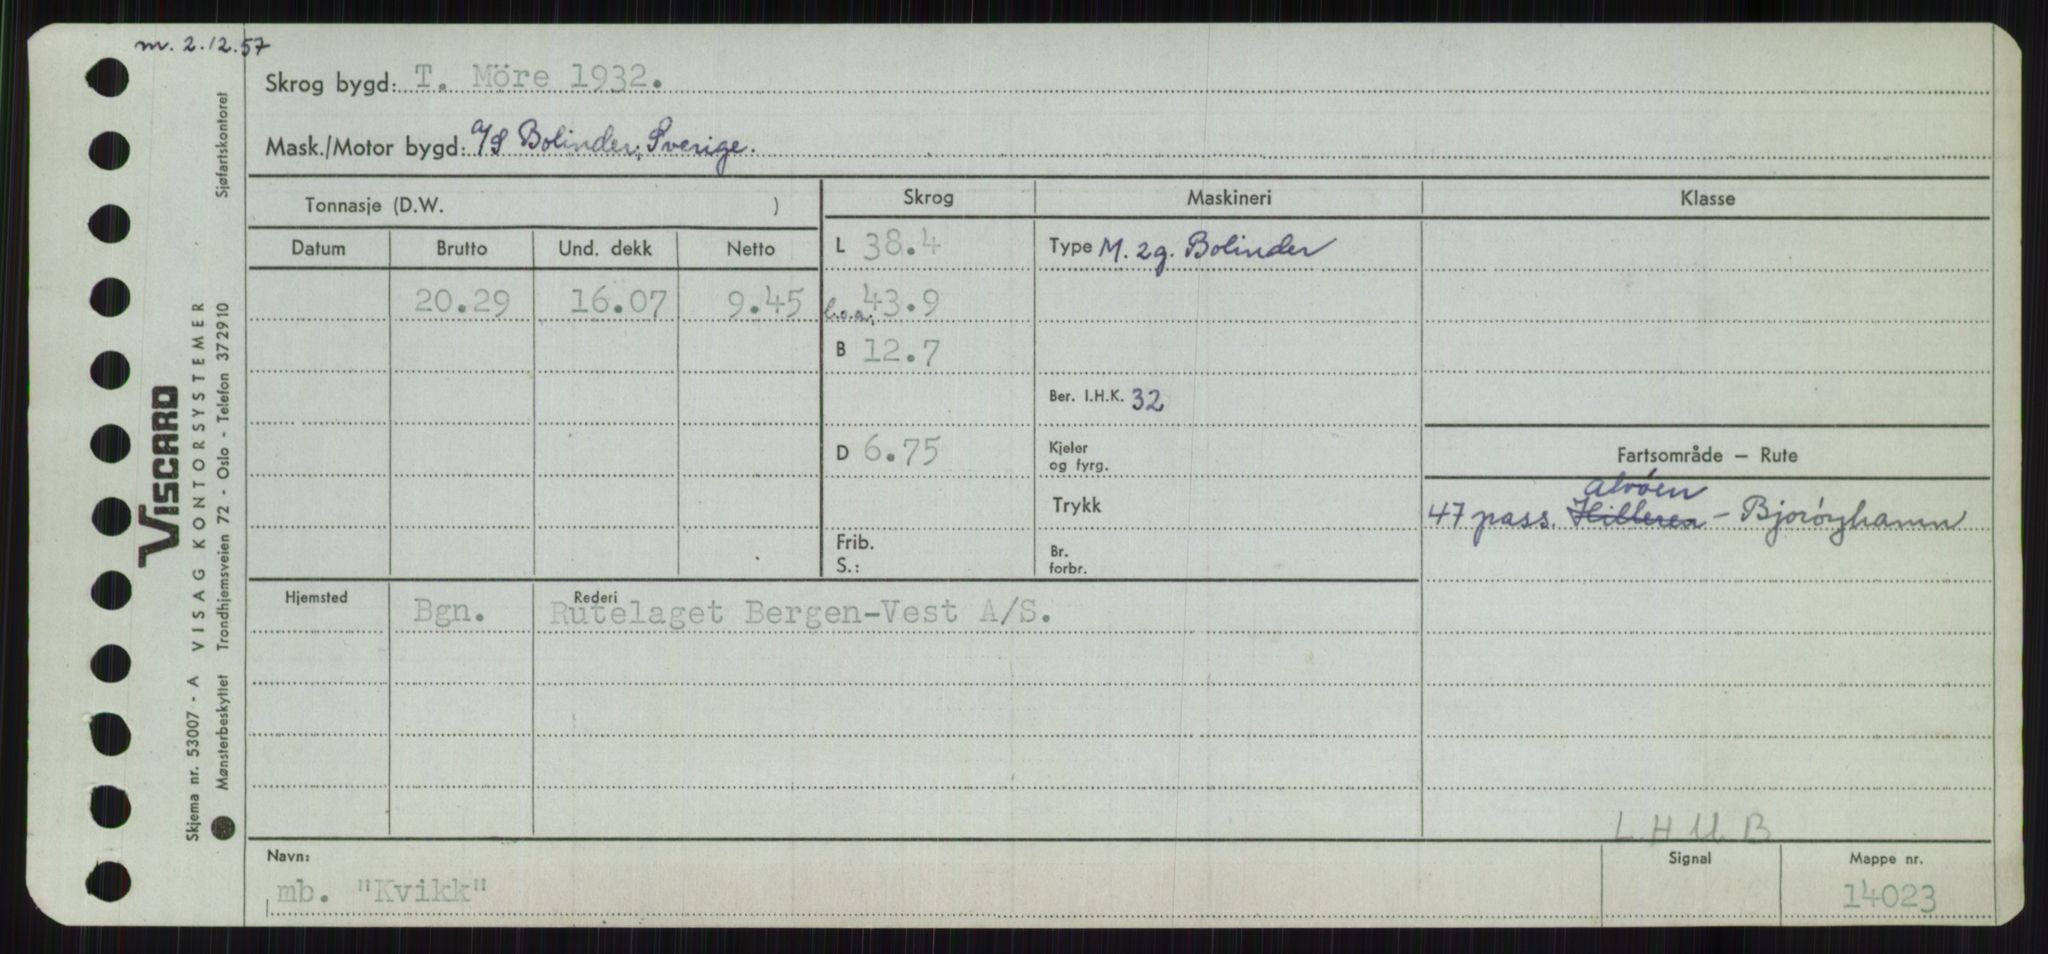 m. 2.12.57
Skrog bygd: T. Möre 1932.
Mask./Motor bygd: A/S Bolinder, Sverige.
Tonnasje (D.W. )
Datum Brutto Und. dekk Netto
20.29 16.07 9.45
Skrog
L 38.4
l.o.a. 43.9
B 12.7
D 6.75
Frib.
S.:
Maskineri
Type M. 2g. Bolinder
Ber. I.H.K. 32
Kjeler
og fyrg.
Trykk
Br.
forbr.
Klasse
Fartsområde – Rute
Alvøen
47 pass. Hilleren – Bjorøyhamn
Hjemsted Rederi
Bgn. Rutelaget Bergen-Vest A/S.
L H U B
Navn: Signal Mappe nr.
mb. "Kvikk" 14023
Sjøfartskontoret
VISCARD
VISAG KONTORSYSTEMER
Trondhjemsveien 72 - Oslo - Telefon 372910
Skjema nr. 53007 - A
Mønsterbeskyttet